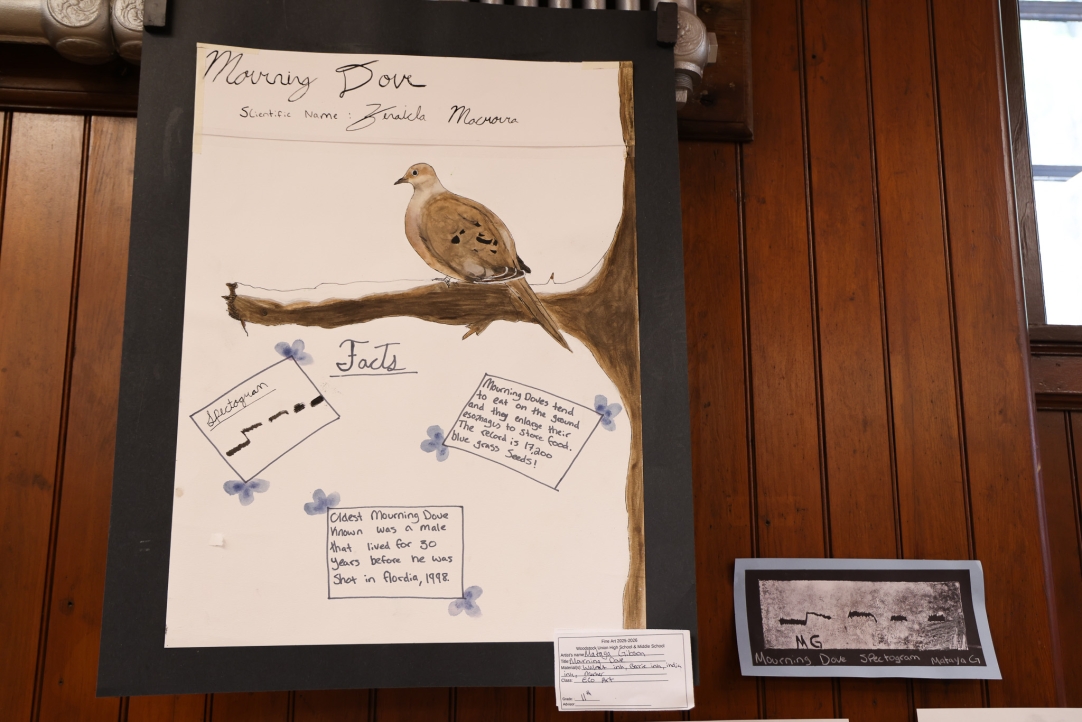 Mourning Dove
Scientific Name : Zenaida Macroura
Facts
Spectogram
Mourning Doves tend
to eat on the ground
and they enlarge their
esophagus to store food.
The record is 17,200
blue grass seeds!
Oldest Mourning Dove
Known was a male
that lived for 30
years before he was
shot in flordia, 1998.
Fine Art 2025-2026
Woodstock Union High School & Middle School
Artist's name Gibson
Title Mourning Dove
Material(s) Walnut ink, Berrie ink, india
ink, Marker
Class: Eco Art
Grade: 11th
Advisor:
MG
Mourning Dove Spectogram Mataya G